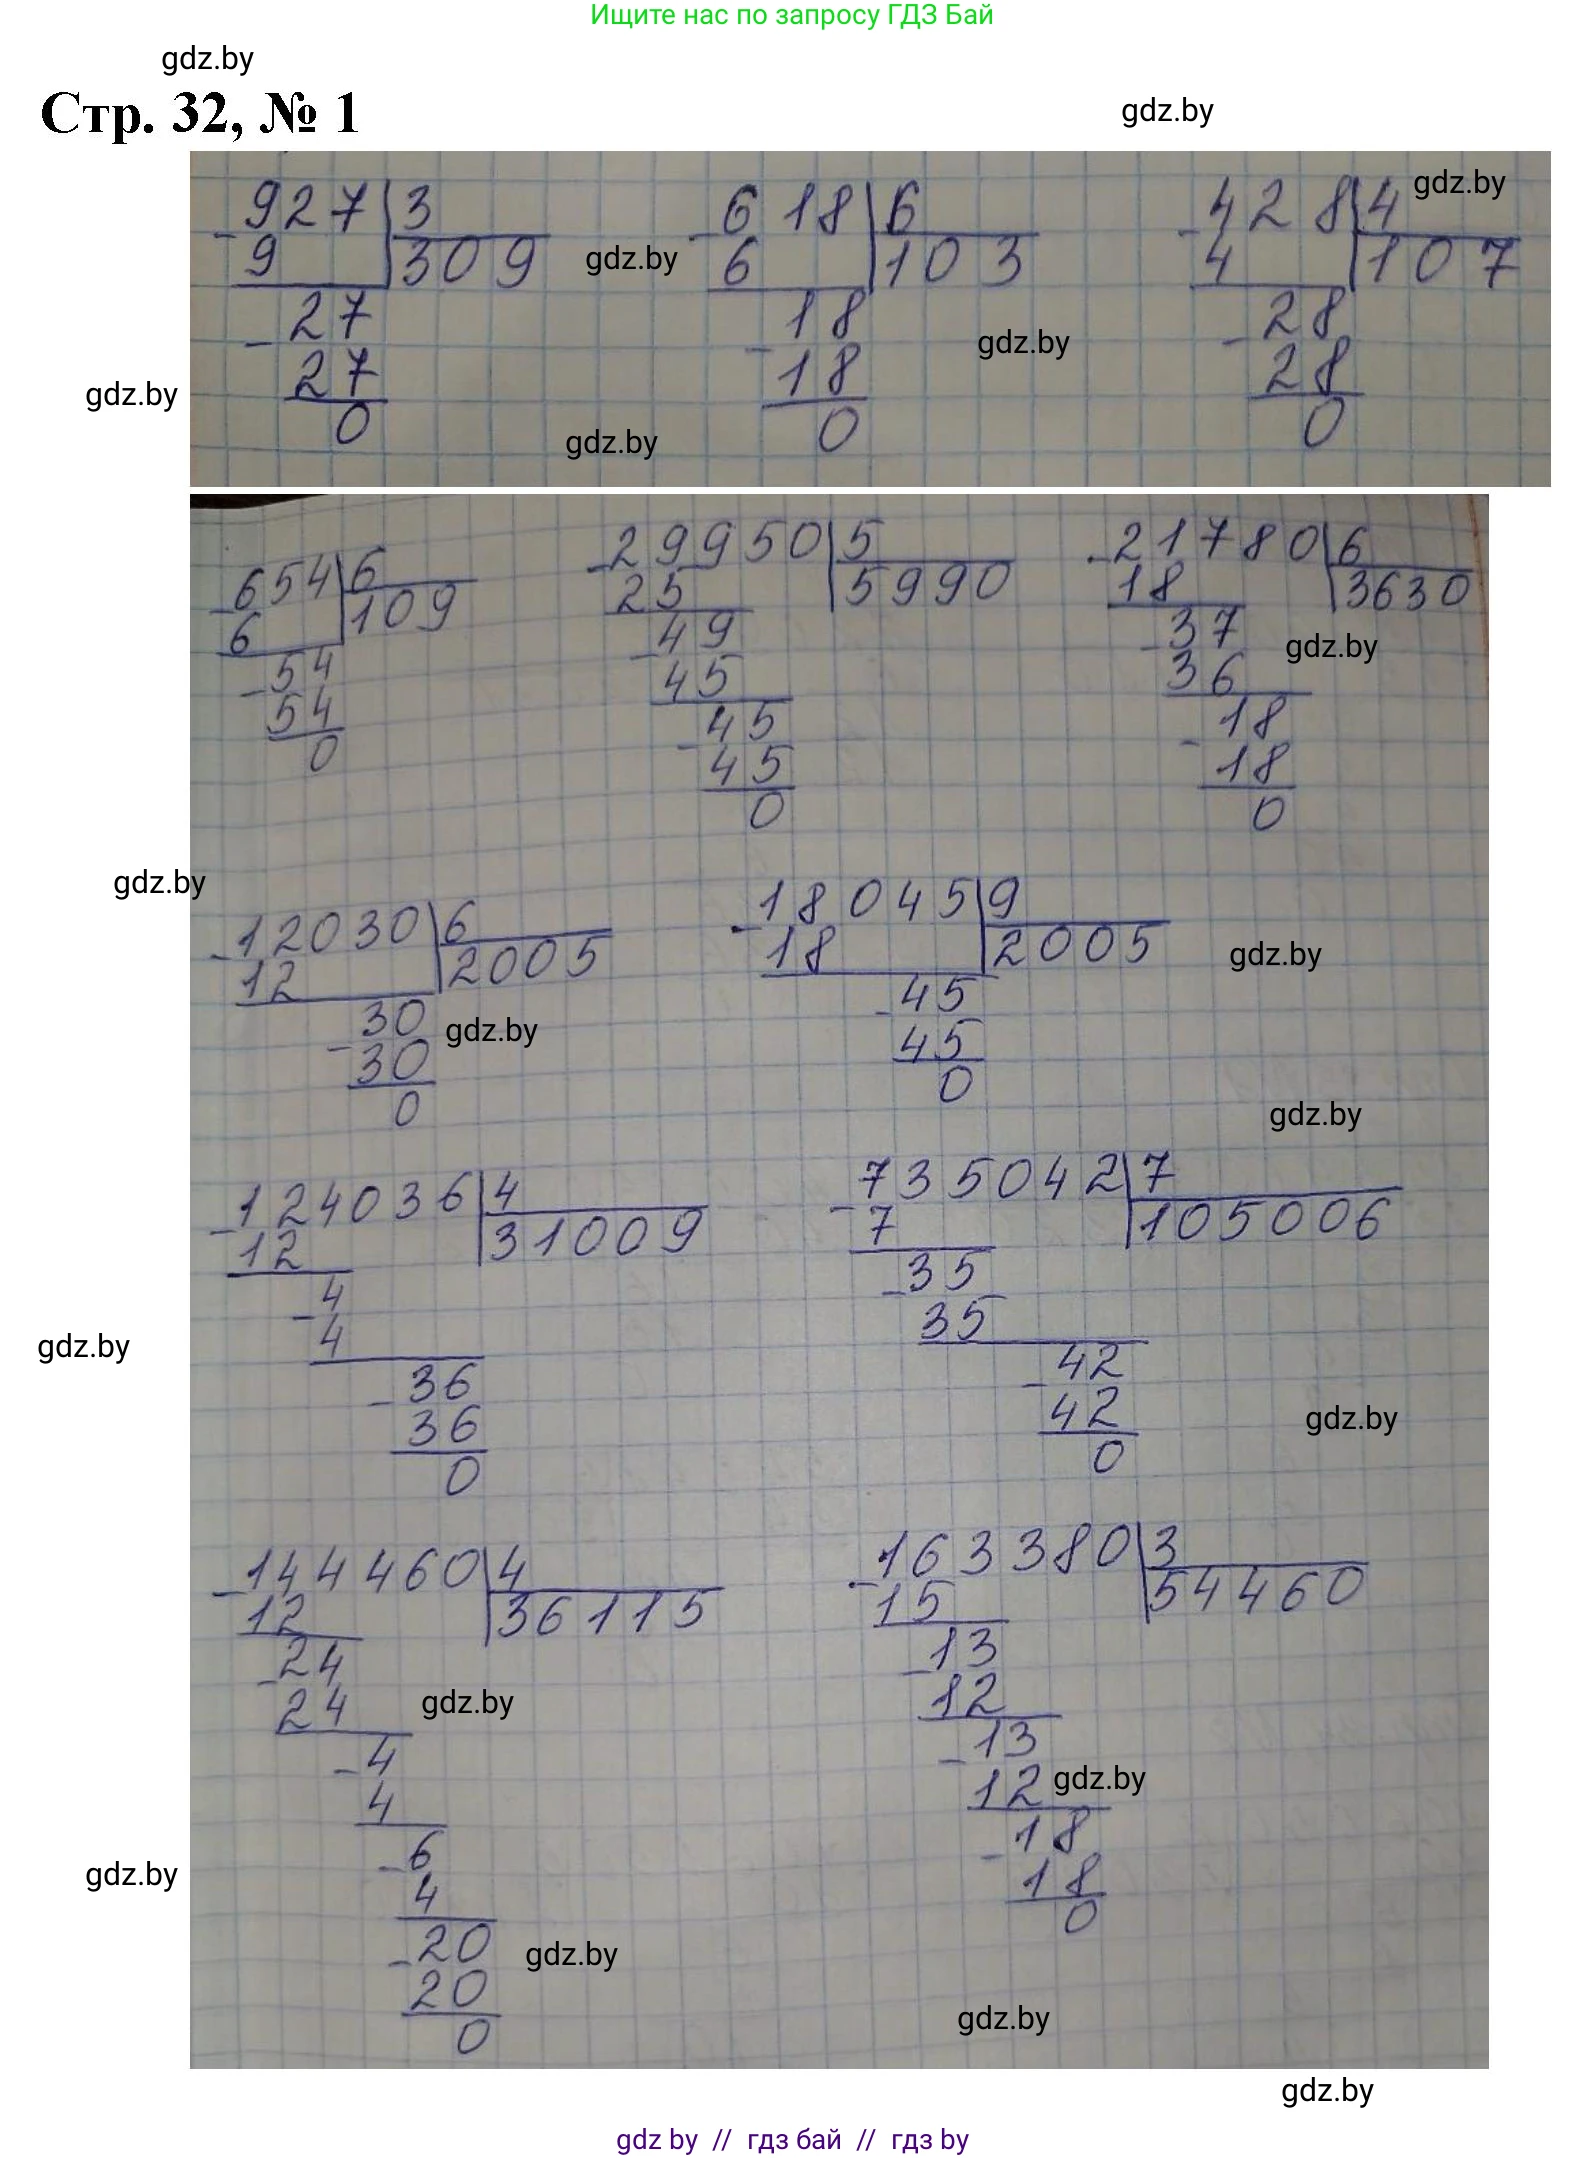 Ищите нас по запросу ГДЗ Бай
gdz.by
Стр. 32, № 1
gdz.by
gdz.by
927 3 618 6 428 4
9 309 gdz.by 6 103 4 107
27 18 28
gdz.by
27 18 28
gdz.by
0 0 0
gdz.by
654 6 29950 5 21780 6
6 109 25 5990 18 3630
54 49 37
gdz.by
54 45 36
0 45 18
45 18
0 0
gdz.by
12030 6 18045 9
12 2005 18 2005
gdz.by
30 45
gdz.by
30 45
0 0
gdz.by
124036 4 735042 7
12 31009 7 105006
4 35
4 35
gdz.by
36 42
36 42
gdz.by
0 0
144460 4 163380 3
12 36115 15 54460
24 13
24 12
gdz.by
4 13
4 12
gdz.by
6 18
4 18
gdz.by
20 0
gdz.by
20
0
gdz.by
gdz.by
gdz by // гдз бай // гдз by